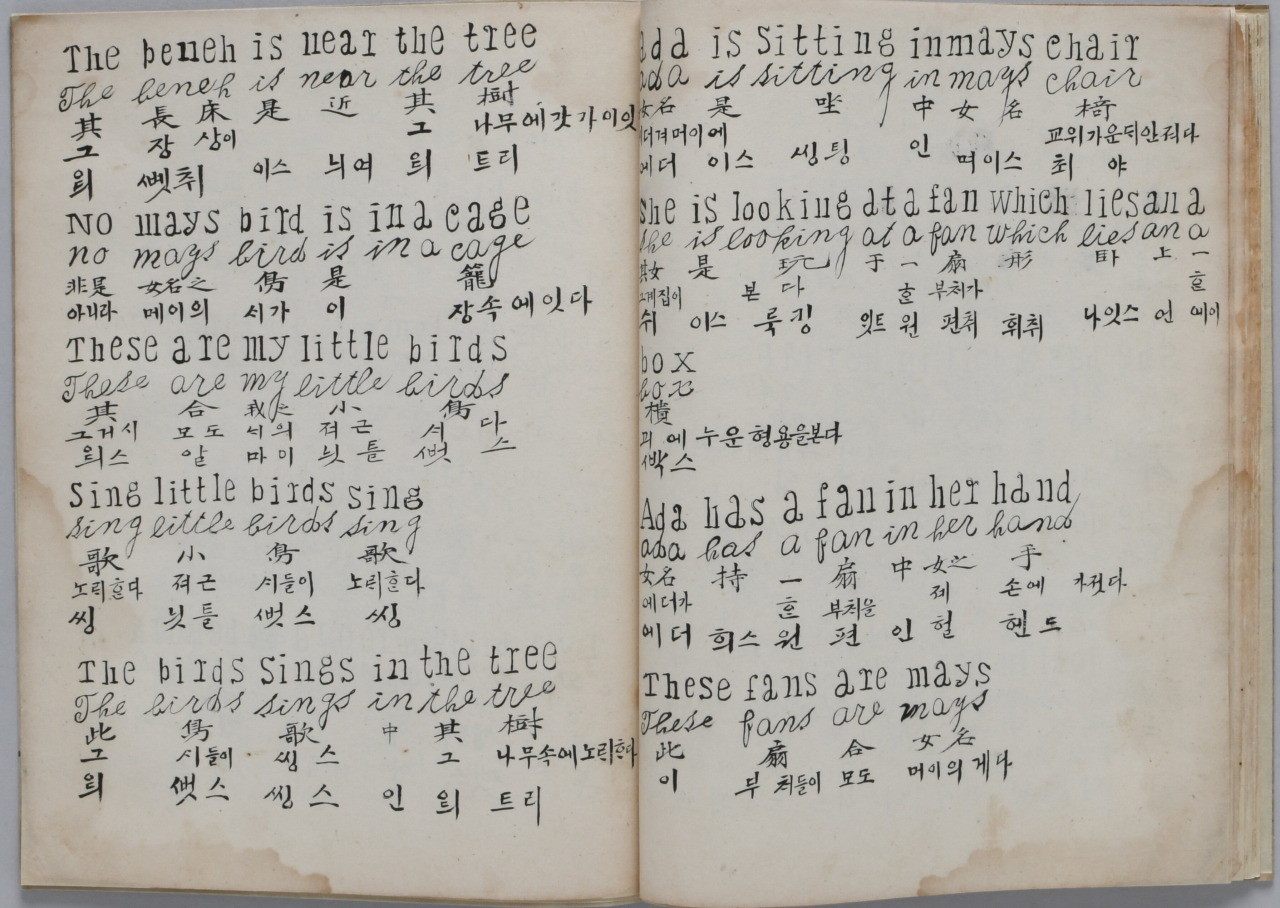 The beneh is near the tree
The beneh is near the tree
其 長 床 是 近 其 樹
그 장 상이 그 나무에갓가이잇
븨 쎗취 이스 늬여 듸 트리
NO mays bird is in a cage
no mays bird is in a cage
非是 女名之 鳥 是 籠
아니라 메이의 시가 이 장속에잇다
These are my little birds
These are my little birds
其 合 我之 小 鳥
그거시 모도 너의 져근 시 다
듸스 알 마이 릿틀 뻣 스
Sing little birds sing
sing little birds sing
歌 小 鳥 歌
노리다 져근 시들이 노리다
씽 릿틀 뻣스 씽
The birds Sings in the tree
The birds sings in the tree
此 鳥 歌 中 其 樹
그 시들이 씽스 그 나무속에노리다
듸 뻣스 씽스 인 듸 트리
ada is Sitting in mays chair
ada is sitting in mays chair
女名 是 坐 中 女名 椅
교위가운듸안젓다
에더 이스 씽팅 인 며이스 최 야
she is looking at a fan which lies an a
she is looking at a fan which lies an a
其女 是 玩 于 一 扇 形 臥 上 一
그계집이 본다 부처가
쉬 이스 룩킹 잇트 원 편취 휘취 나잇스 언 에이
box
box
樻
괴에누운형용을본다
빡스
Ada has a fan in her hand
ada has a fan in her hand
女名 持 一 扇 中 女之 手
에더가 부처을 제 손에 가젓다
에더 희스 원 편 인 헐 헨드
These fans are mays
These fans are mays
此 扇 合 女名
이 부처들이 모도 머이의게다